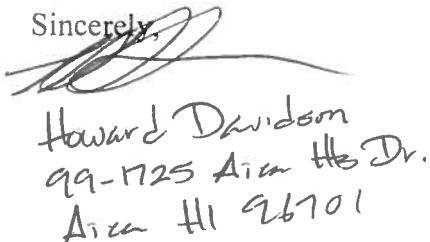 Sincerely,
Howard Davidson
99-1725 Aiea Hts Dr.
Aiea HI 96701